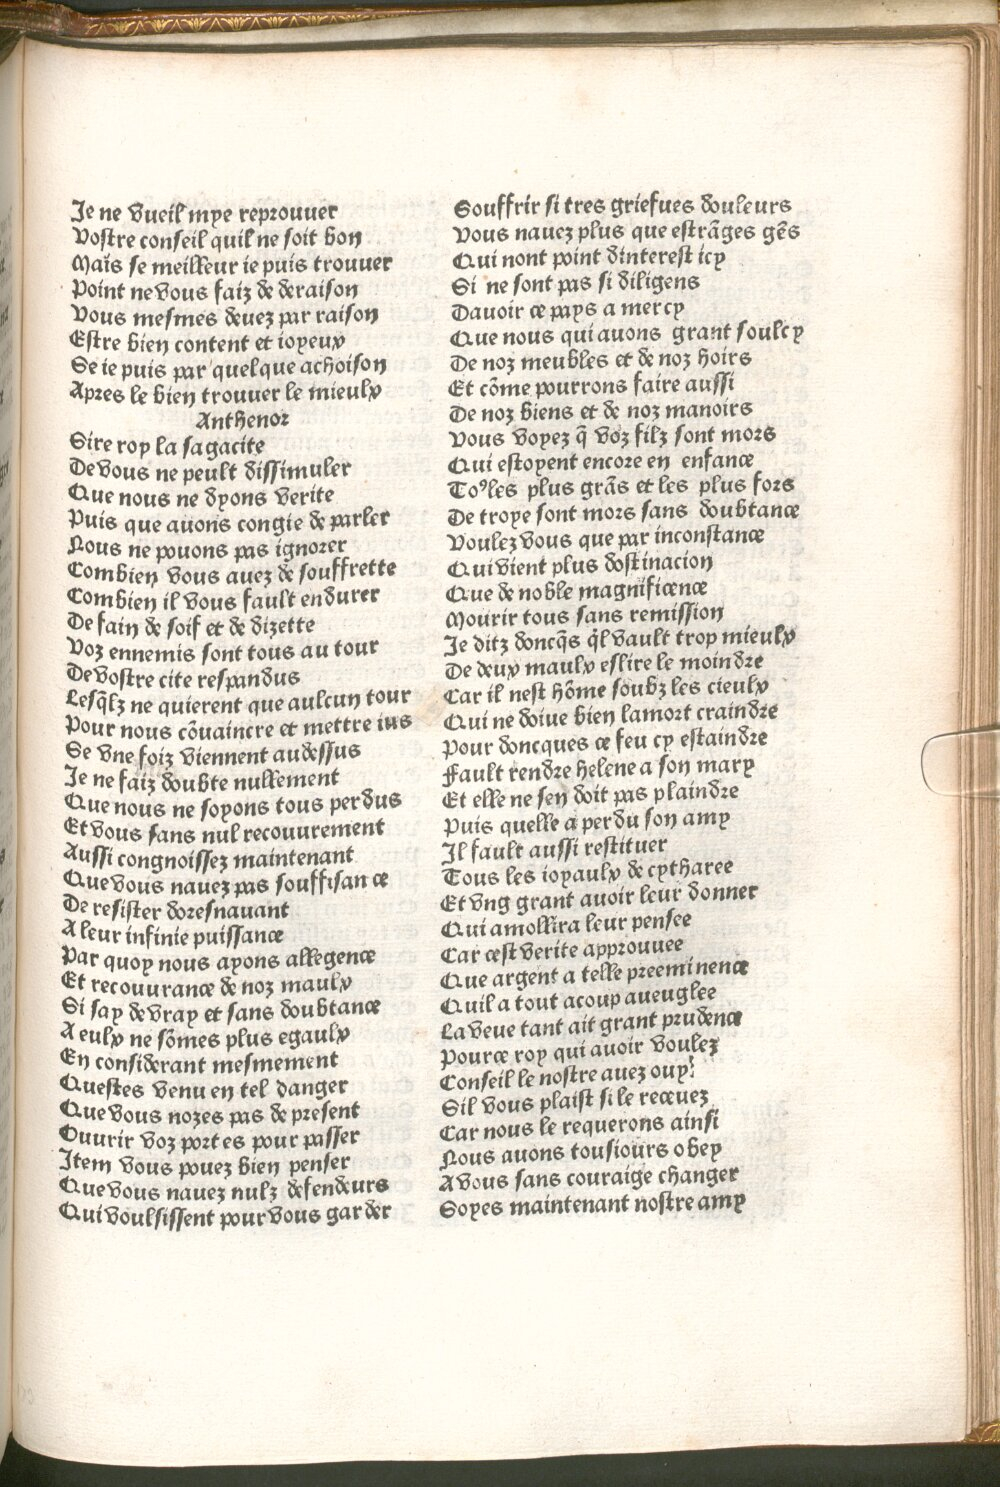 Je ne vueil mye reprouuer
Vostre conseil quil ne soit bon
Mais se meilleur ie puis trouuer
Point ne vous faiz de deraison
Vous mesmes deuez par raison
Estre bien content et ioyeux
Se ie puis par quelque achoison
Apres le bien trouuer le mieulx
Anthenor
Sire roy la sagacite
De vous ne peult dissimuler
Que nous ne dyons verite
Puis que auons congie de parler
Nous ne pouons pas ignorer
Combien vous auez de souffrette
Combien il vous fault endurer
De fain de soif et de dizette
Voz ennemis sont tous au tour
De vostre cite respandus
Lesq̃lz ne quierent que aulcun tour
Pour nous cõuaincre et mettre ius
Se vne foiz viennent au dessus
Je ne faiz doubte nullement
Que nous ne soyons tous perdus
Et vous sans nul recouurement
Aussi congnoissez maintenant
Que vous nauez pas souffisance
De resister doresnauant
A leur infinie puissance
Par quoy nous ayons allegence
Et recouurance de noz maulx
Si say de vray et sans doubtance
A eulx ne sõmes plus egaulx
En considerant mesmement
Questes venu en tel danger
Que vous nozes pas de present
Ouurir voz portes pour passer
Item vous pouez bien penser
Que vous nauez nulz defendeurs
Qui voulsissent pour vous garder
Souffrir si tres griefues douleurs
Vous nauez plus que estrãges gẽs
Qui nont point dinterest icy
Si ne sont pas si diligens
Dauoir ce pays a mercy
Que nous qui auons grant soulcy
De noz meubles et de noz hoirs
Et cõme pourrons faire aussi
De noz biens et de noz manoirs
Vous voyez q̃ voz filz sont mors
Qui estoyent encore en enfance
Toꝰ les plus grãs et les plus fors
De troye sont mors sans doubtance
Voulez vous que par inconstance
Qui vient plus dostinacion
Que de noble magnificence
Mourir tous sans remission
Je ditz doncq̃s q̃l vault trop mieulx
De deux maulx eslire le moindre
Car il nest hõme soubz les cieulx
Qui ne doiue bien la mort craindre
Pour doncques ce feu cy estaindre
Fault rendre helene a son mary
Et elle ne sen doit pas plaindre
Puis quelle a perdu son amy
Il fault aussi restituer
Tous les ioyaulx de cytharee
Et vng grant auoir leur donner
Qui amollira leur pensee
Car cest verite approuuee
Que argent a telle preeminence
Quil a tout acoup aueuglee
La veue tant ait grant prudence
Pource roy qui auoir voulez
Conseil le nostre auez ouy:
Sil vous plaist si le receuez
Car nous le requerons ainsi
Nous auons tousiours obey
A vous sans couraige changer
Soyes maintenant nostre amy